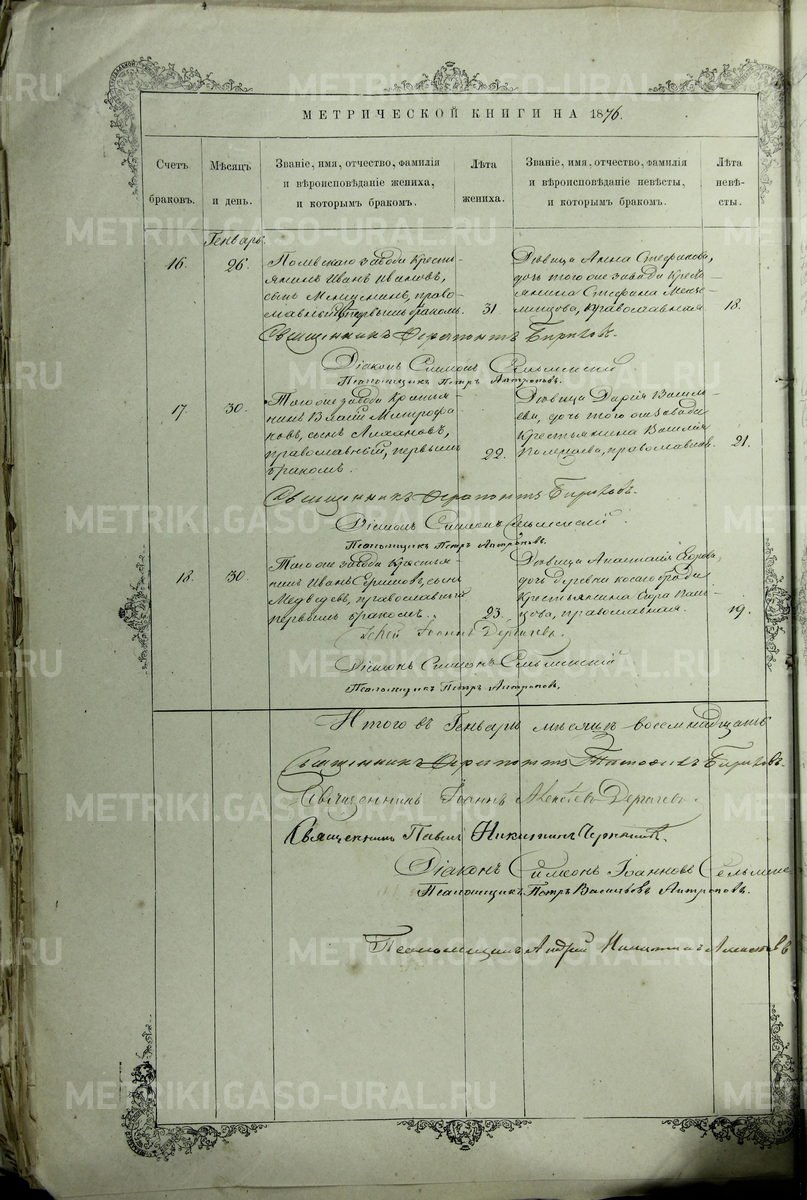 МЕТРИЧЕСКОЙ КНИГИ НА 1876.
Счетъ браковъ.
Мѣсяцъ и день.
Званіе, имя, отчество, фамилія
и вѣроисповѣданіе жениха,
и которымъ бракомъ.
Лѣта жениха.
Званіе, имя, отчество, фамилія
и вѣроисповѣданіе невѣсты,
и которымъ бракомъ.
Лѣта невѣсты.
Генварь
16.
26.
Полевскаго завода кресть-
янинъ Иванъ Ивановъ,
сынъ право-
славный, первымъ бракомъ.
31.
Дѣвица Анна Стефанова,
дочь того же завода кресть-
янина Стефана
православная
18.
Священникъ Ферапонтъ Бирюковъ.
Діаконъ Симеонъ Сельменскій
Псаломщикъ Петръ Антроповъ.
17.
30.
Того же завода крестья-
нинъ Власій Митрофа-
новъ, сынъ
православный, первымъ
бракомъ.
22.
Дѣвица Дарія Василь-
ева, дочь того же завода
крестьянина Василія
православная.
21.
Священникъ Ферапонтъ Бирюковъ.
Діаконъ Симеонъ Сельменскій.
Псаломщикъ Петръ Антроповъ.
18.
30.
Того же завода крестья-
нинъ Иванъ сынъ
Медведевъ, православный
первымъ бракомъ.
23.
Дѣвица Анастасія
дочь деревни Косаго брода
крестьянина
православная.
19.
Іерей Іоаннъ Дергачевъ.
Діаконъ Симеонъ Сельменскій
Псаломщикъ Петръ Антроповъ.
Итого въ Генварѣ мѣсяцѣ восемнадцать
Священникъ Ферапонтъ Бирюковъ.
Священникъ Іоаннъ Алексѣевъ Дергачевъ.
Священникъ Павелъ Никитинъ
Діаконъ Симеонъ Іоанновъ
Псаломщикъ Петръ Васильевъ Антроповъ.
Псаломщикъ Андрей
METRIKI.GASO-URAL.RU